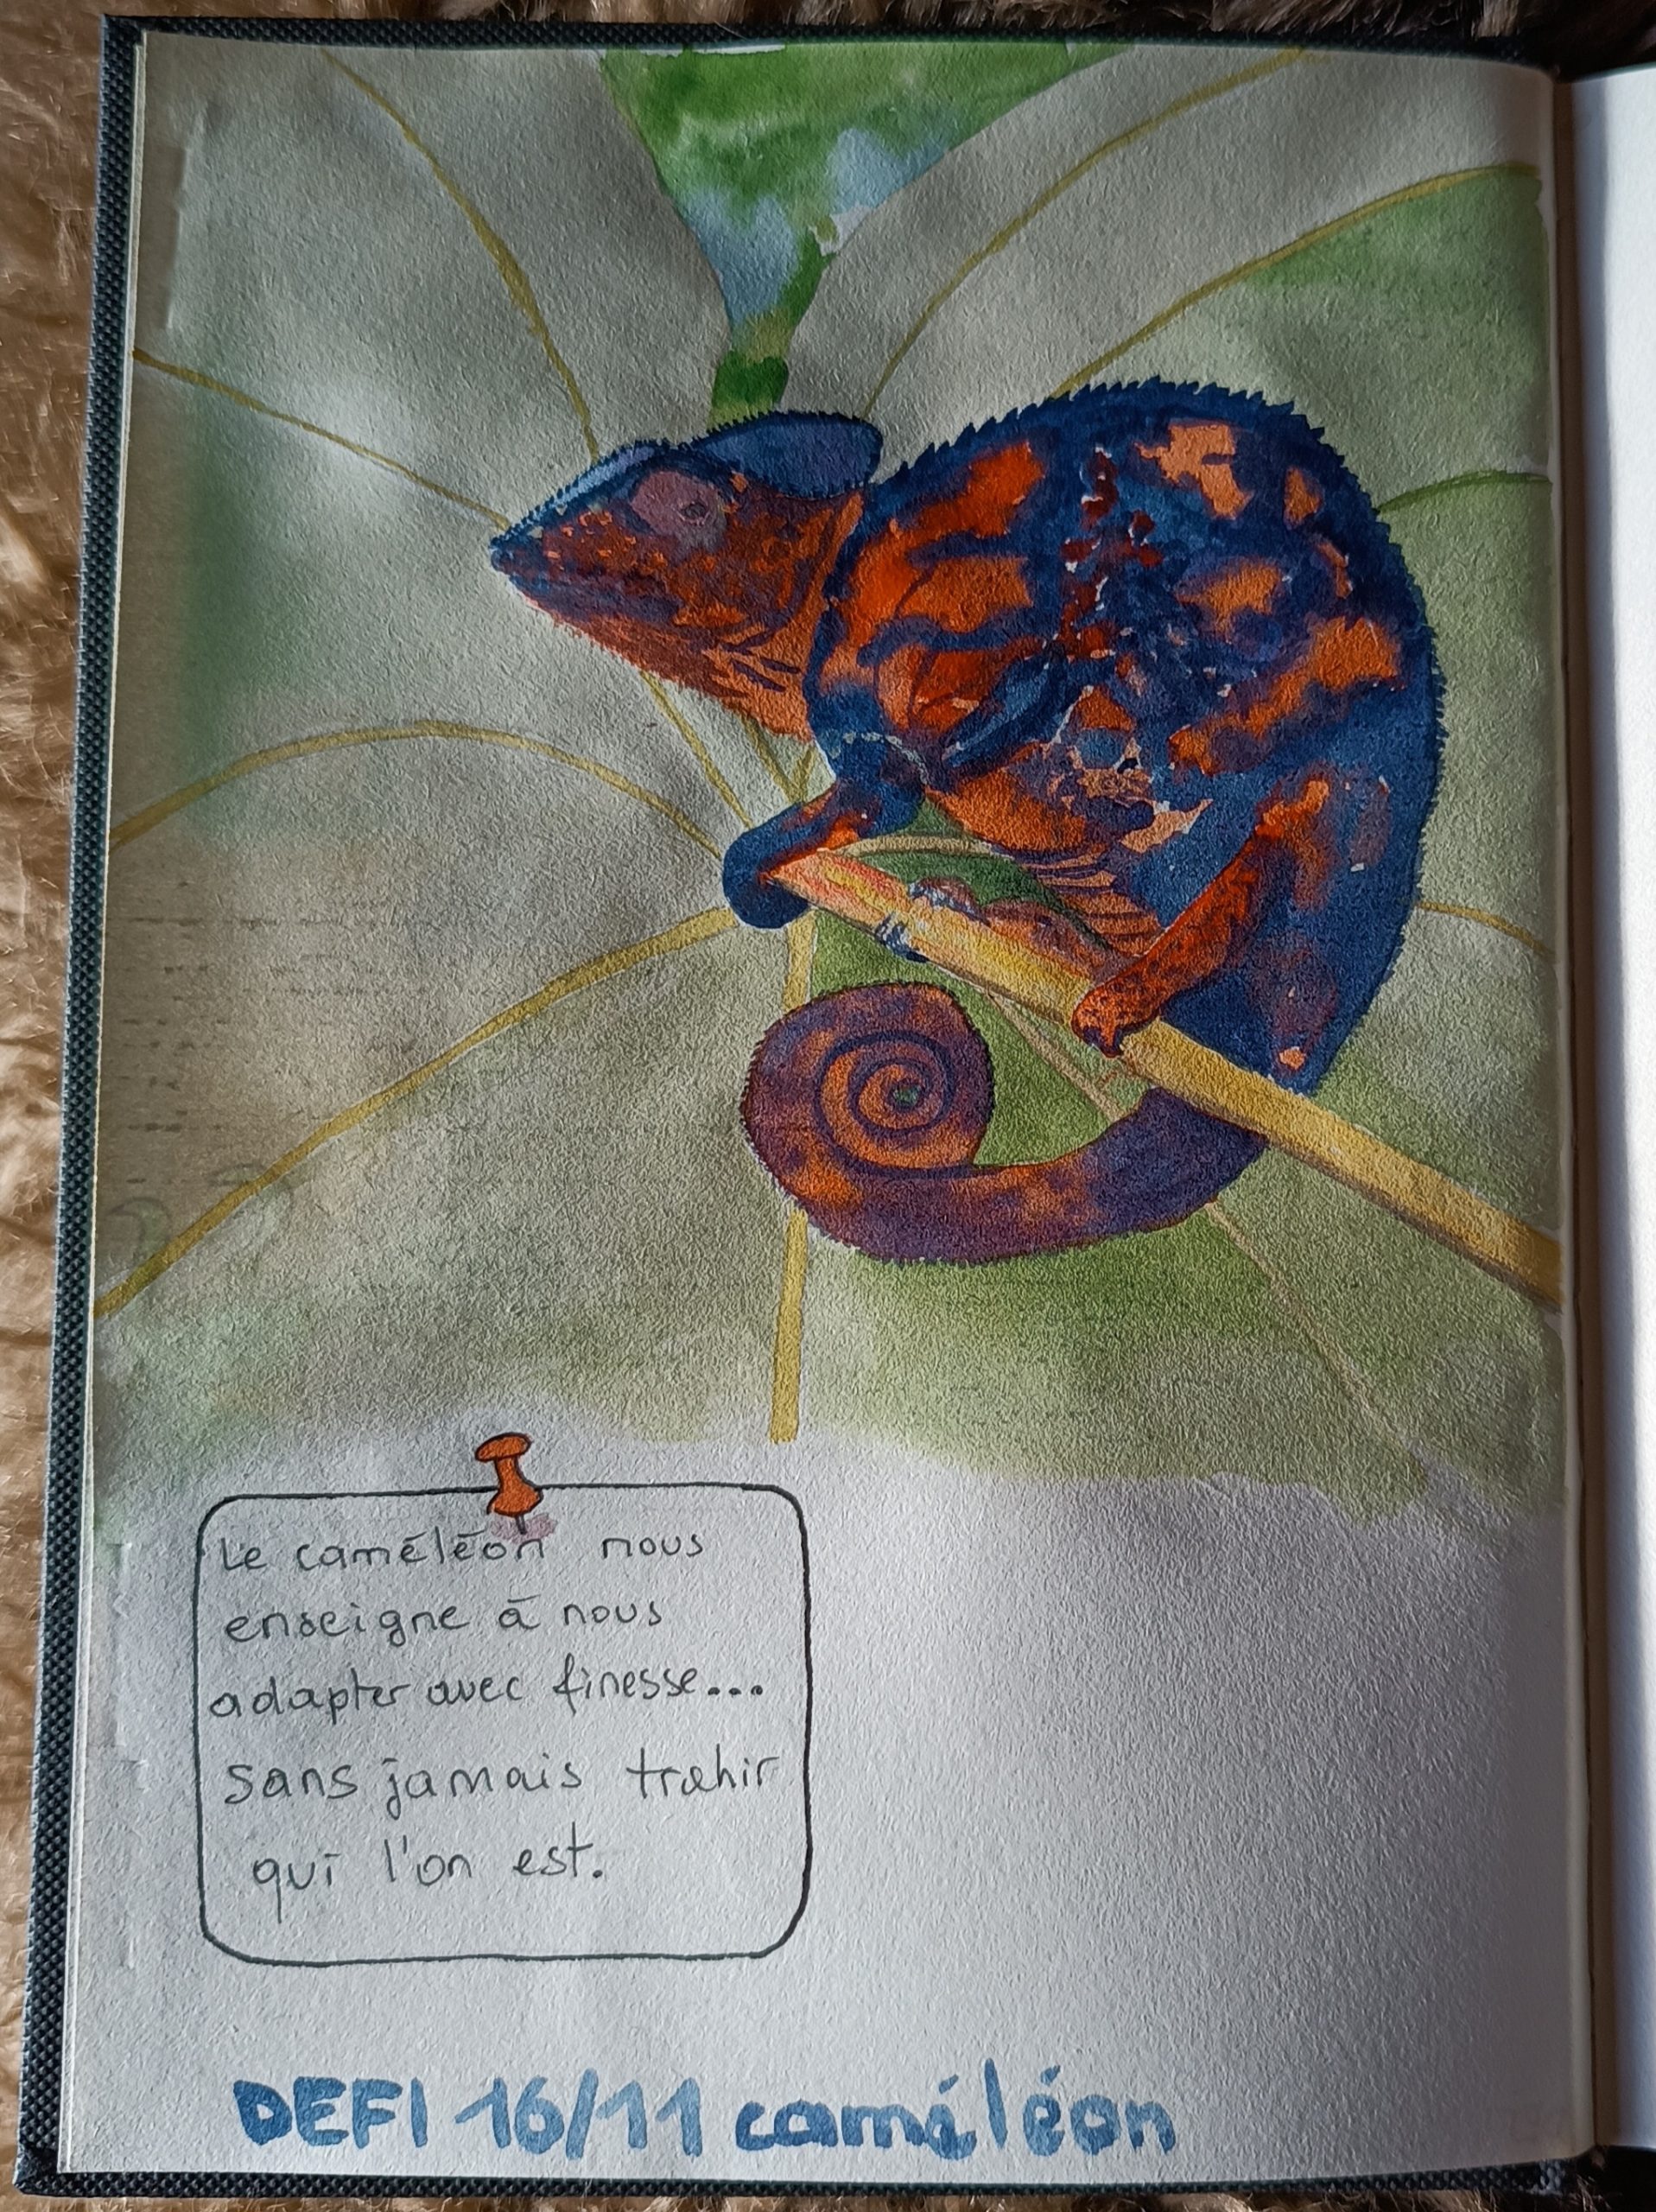 Le caméléon nous
enseigne à nous
adapter avec finesse...
sans jamais trahir
qui l'on est.
DEFI 16/11 caméléon